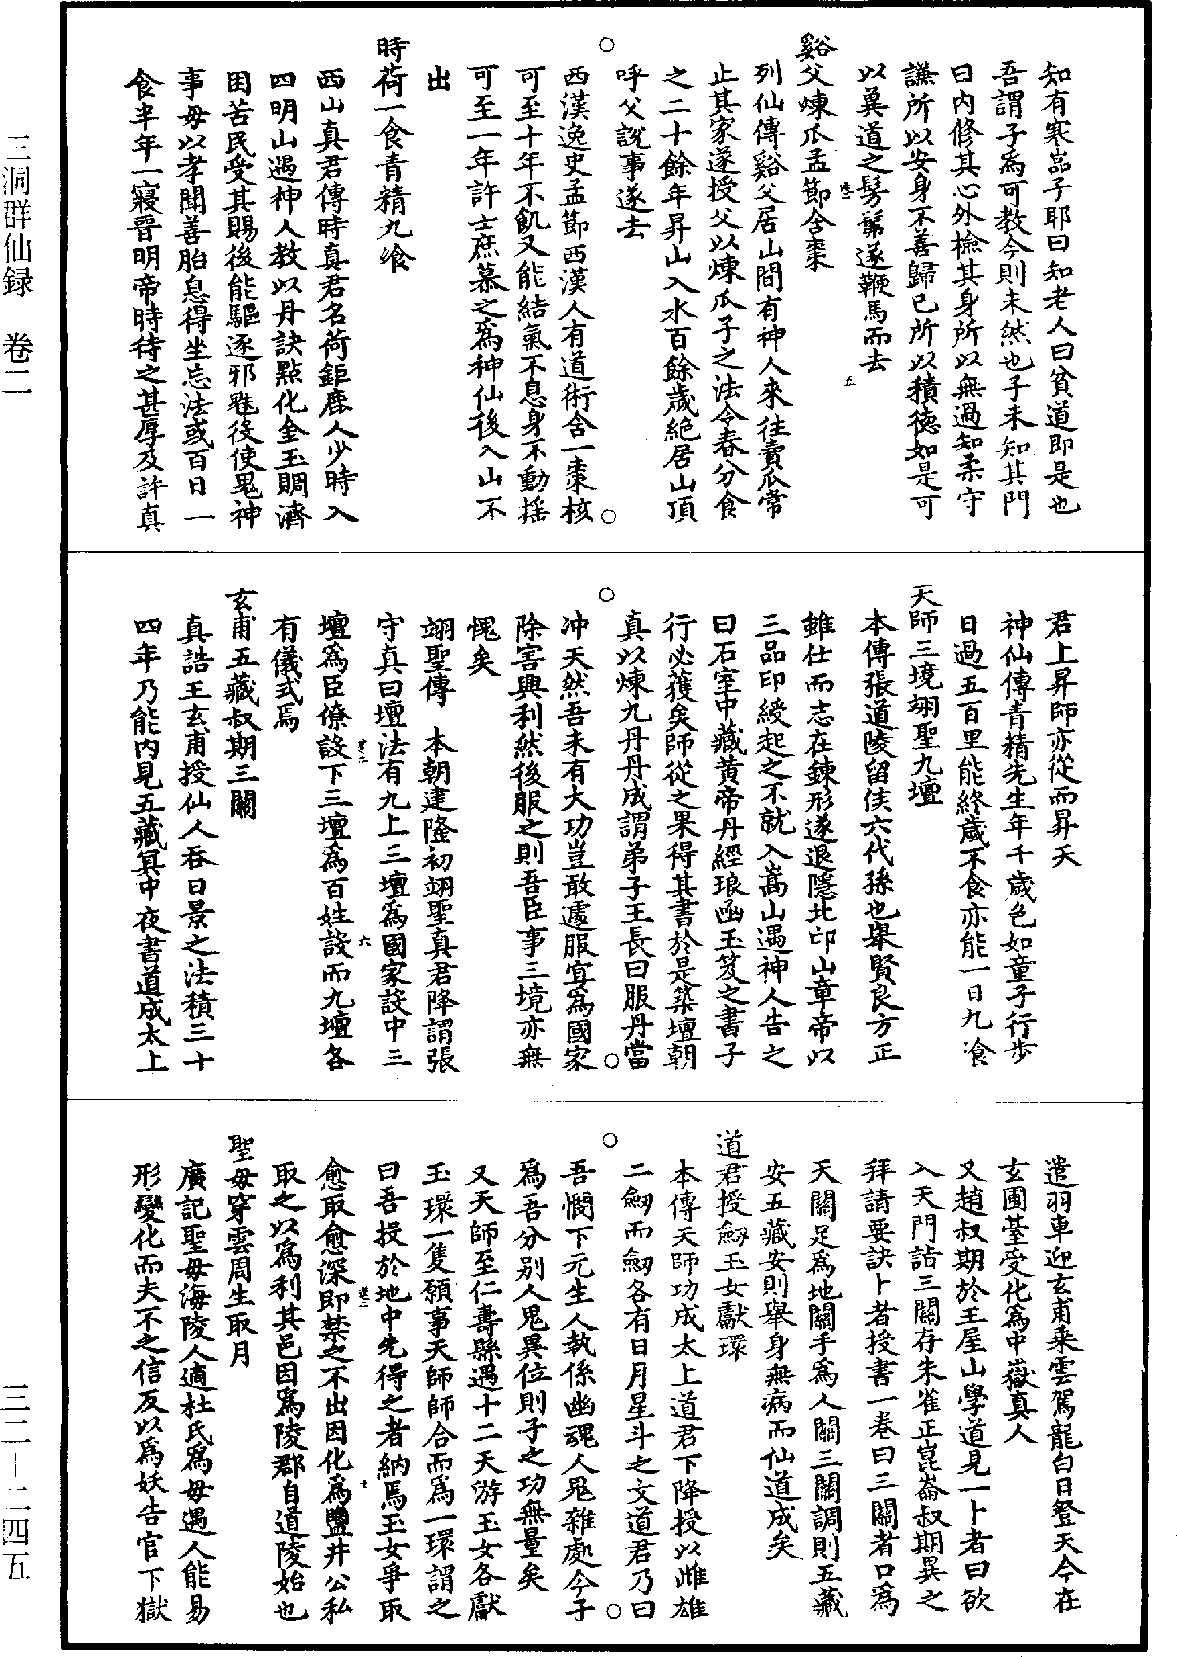 知有寒嵓子耶曰知老人曰貧道即是也
吾謂子爲可教今則未然也子未知其門
曰内修其心外檢其身所以無過知柔守
謙所以安身不善歸已所以積德如是可
以冀道之髣髴遂鞭馬而去
谿父煉瓜孟節含棗
列仙傳谿父居山間有神人來往賣瓜常
止其家遂授父以煉瓜子之法令春分食
之二十餘年昇山入水百餘歲絶居山頂
呼父說事遂去
西漢逸史孟節西漢人有道術含一棗核
可至十年不飢又能結氣不息身不動揺
可至一年許士庶慕之爲神仙後入山不
出
時荷一食青精九飡
西山真君傳時真君名荷鉅鹿人少時入
四明山遇神人教以丹訣點化金玉賙濟
困苦民受其賜後能驅逐邪魅役使鬼神
事母以孝聞善胎息得坐忘法或百日一
食半年一寢晉明帝時待之甚厚及許真
君上昇師亦從而昇天
神仙傳青精先生年千歲色如童子行步
日過五百里能終歲不食亦能一日九飡
天師三境翊聖九壇
本傳張道陵留侯六代孫也舉賢良方正
雖仕而志在鍊形遂退隱北邙山章帝以
三品印綬起之不就入嵩山遇神人告之
曰石室中藏黄帝丹經琅函玉笈之書子
行必獲矣師從之果得其書於是築壇朝
真以煉九丹丹成謂弟子王長曰服丹當
冲天然吾未有大功豈敢遽服宜爲國家
除害興利然後服之則吾臣事三境亦無
愧矣
翊聖傳 本朝建隆初翊聖真君降謂張
守真曰壇法有九上三壇爲國家設中三
壇爲臣僚設下三壇爲百姓設而九壇各
有儀式焉
玄甫五藏叔期三關
真誥王玄甫授仙人吞日景之法積三十
四年乃能内見五藏冥中夜書道成太上
遣羽車迎玄甫乘雲駕龍白日登天今在
玄圃臺受化爲中嶽真人
又趙叔期於王屋山學道見一卜者曰欲
入天門詀三關存朱雀正崑崙叔期異之
拜請要訣卜者授書一卷曰三關者口爲
天關足爲地關手爲人關三關調則五藏
安五藏安則舉身無病而仙道成矣
道君授劒玉女獻環
本傳天師功成太上道君下降授以雌雄
二劒而劒各有日月星斗之文道君乃曰
吾憫下元生人執係幽魂人鬼雜處今子
爲吾分別人鬼異位則子之功無量矣
又天師至仁壽縣遇十二天游玉女各獻
玉環一隻願事天師師合而爲一環謂之
曰吾投於地中先得之者納焉玉女爭取
愈取愈深即禁之不出因化爲鹽井公私
取之以爲利其邑因爲陵郡自道陵始也
聖母穿雲周生取月
廣記聖母海陵人適杜氏爲母遇人能易
形變化而夫不之信反以爲妖告官下獄
三洞群仙録 卷二
三二—二四五
五
六
七